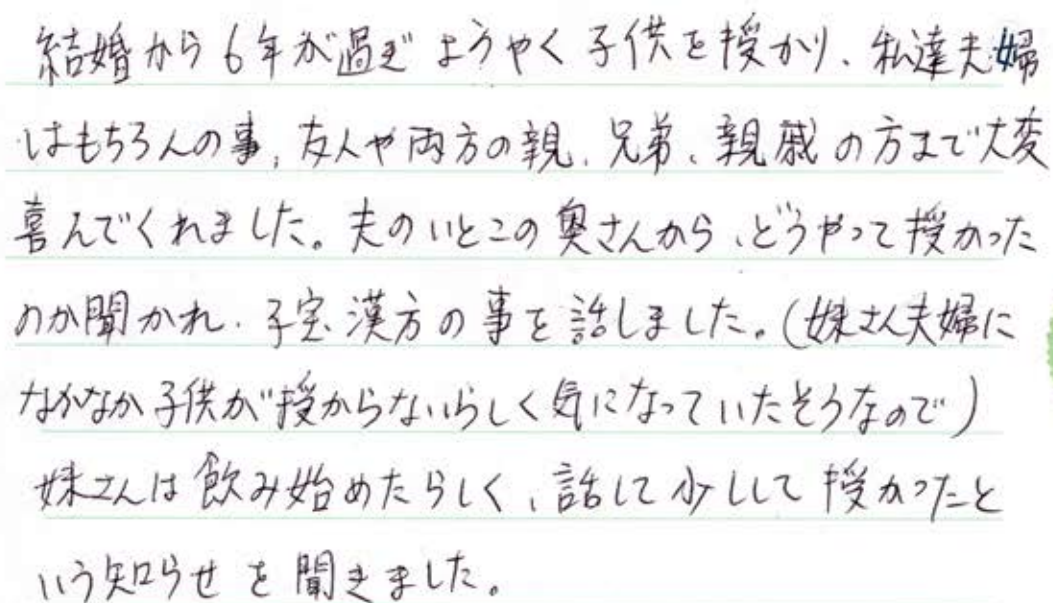 結婚から6年が過ぎようやく子供を授かり、私達夫婦
はもちろんの事、友人や両方の親、兄弟、親戚の方まで大変
喜んでくれました。夫のいとこの奥さんから、どうやって授かった
のか聞かれ、子宝漢方の事を話しました。(妹さん夫婦に
なかなか子供が授からないらしく気になっていたそうなので)
妹さんは飲み始めたらしく、話して少しして授かったと
いう知らせを聞きました。